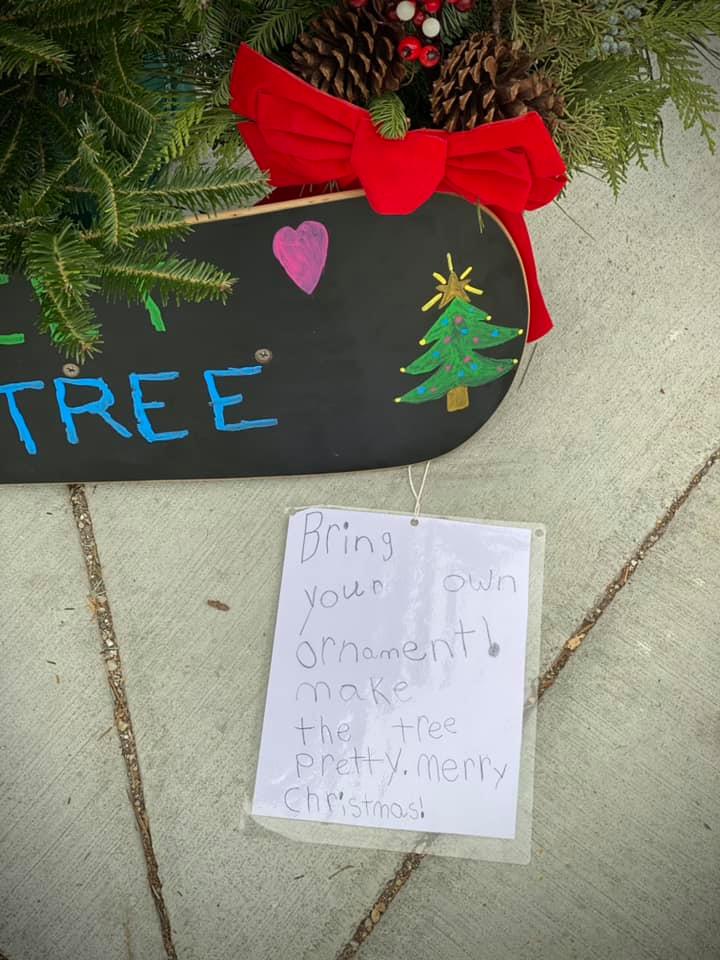 TREE
Bring
your own
ornament!
make
the tree
pretty. merry
christmas!